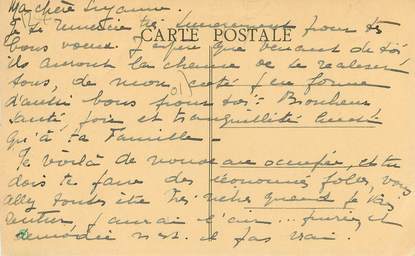 Ma chère Suzanne.
Je te remercie très sincèrement pour tes
bons voeux. J'espère que venant de toi
CARTE POSTALE
ils auront la chance de se réaliser
tous, de mon côté j'en forme
d'aussi bons pour toi: Bonheur
santé, joie et tranquillité
qu'à ta famille -
Te voilà de nouveau occupée, et tu
dois te faire des économies folles, vous
allez toutes être très riches quand je vais
rentrer, j'aurai l'air
n'est-il pas vrai.